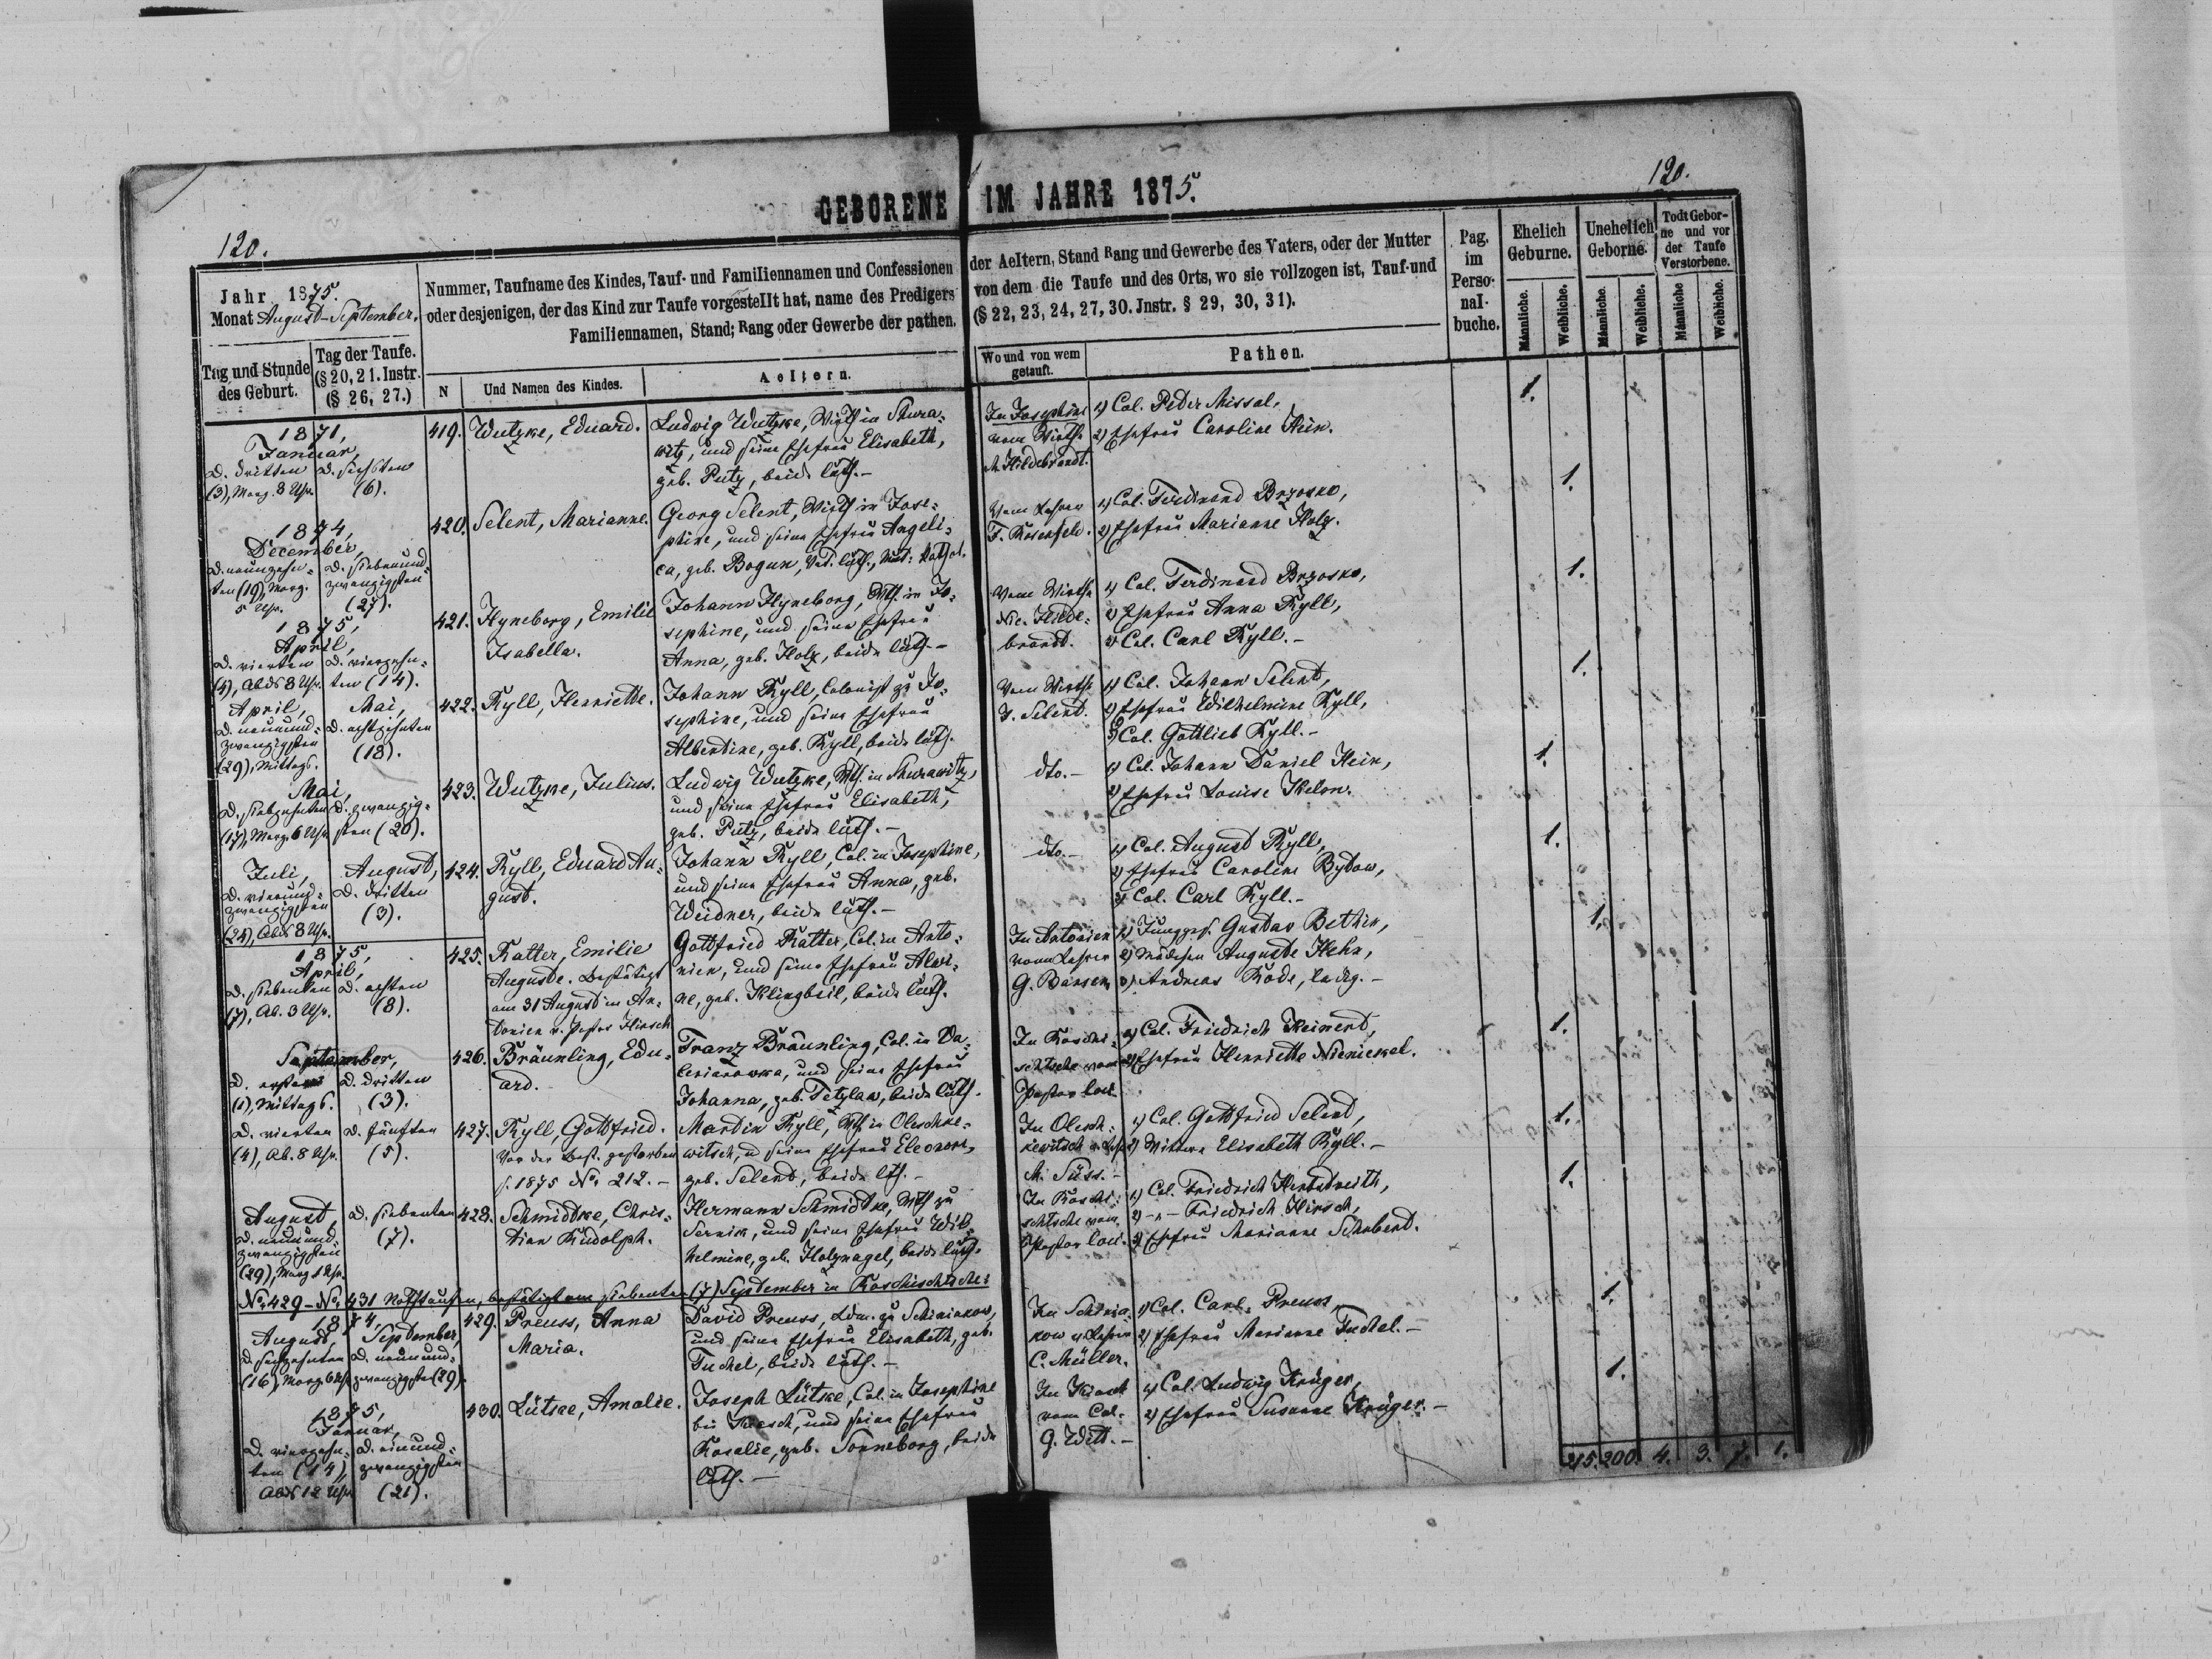 GEBORENE IM JAHRE 1875.
120.
120.
Jahr 1875.
Monat August-September.
Tag und Stunde des Geburt.
Tag der Taufe. (§ 20, 21. Instr. (§ 26, 27.)
Nummer, Taufname des Kindes, Tauf- und Familiennamen und Confessionen
oder desjenigen, der das Kind zur Taufe vorgestellt hat, name des Predigers
Familiennamen, Stand; Rang oder Gewerbe der pathen.
N
Und Namen des Kindes.
Aeltern.
der Aeltern, Stand Rang und Gewerbe des Vaters, oder der Mutter
von dem die Taufe und des Orts, wo sie vollzogen ist, Tauf-und
(§ 22, 23, 24, 27, 30. Jnstr. § 29, 30, 31).
Wo und von wem getauft.
Pathen.
Pag. im Perso- nal- buche.
Ehelich Geburne.
Unehelich Geborne.
Todt Gebor- ne und vor der Taufe Verstorbene.
Männliche.
Weibliche.
Männliche.
Weibliche.
Männliche
Weibliche.
1871,
Januar,
d. dritten
(3), Morg. 8 Uhr.
d. sechsten
(6).
419.
Wutzke, Eduard.
Ludwig Wutzke, Wirth in Skura-
witz, und seine Ehefrau Elisabeth,
geb. Putz, beide luth.-
In Josephine
vom Wirth
M. Hildebrandt.
1) Col. Peter Missal,
2) Ehefrau Caroline Hein.
1.
1874,
December,
d. neunzehn-
ten (19), Morg.
5 Uhr.
d. siebenund-
zwanzigsten
(27).
420.
Selent, Marianne.
Georg Selent, Wirth in Jose-
phine, und seine Ehefrau Angeli-
ca, geb. Bogun, Vat. luth., Mut. kathol.
Vom Lehrer
F. Rosenfeld.
1) Col. Ferdinand Brzosko,
2) Ehefrau Marianne Holz.
1.
1875,
April,
d. vierten
(4), Abds 8 Uhr.
d. vierzehn-
ten (14).
421.
Hyneborg, Emilie
Isabella.
Johann Hyneborg, Wth. in Jo-
sephine, und seine Ehefrau
Anna, geb. Holz, beide luth.-
Vom Wirth
Nic. Hilde-
brandt.
1) Col. Ferdinand Brzosko,
2) Ehefrau Anna Ryll,
3) Col. Carl Ryll.-
1.
April,
d. neunund-
zwanzigsten
(29), Mittags.
Mai,
d. achtzehnten
(18).
422.
Ryll, Henriette.
Johann Ryll, Colonist zu Jo-
sephine, und seine Ehefrau
Albertine, geb. Ryll, beide luth.
Vom Wirth
J. Selent.
1) Col. Johann Selent,
2) Ehefrau Wilhelmine Ryll,
3) Col. Gottlieb Ryll.-
1.
Mai,
d. siebzehnten
(17), Morg. 6 Uhr.
d. zwanzig-
sten (20).
423.
Wutzke, Julius.
Ludwig Wutzke, Wth. in Skurawitz,
und seine Ehefrau Elisabeth,
geb. Putz, beide luth.-
dto.-
1) Col. Johann Daniel Hein,
2) Ehefrau Louise
1.
Juli,
d. vierund-
zwanzigsten
(24), Abds 8 Uhr.
August,
d. dritten
(3).
424.
Ryll, Eduard Au-
gust.
Johann Ryll, Col. in Josephine,
und seine Ehefrau Anna, geb.
Weidner, beide luth.-
dto.-
1) Col. August Ryll,
2) Ehefrau Caroline Bytow,
3) Col. Carl Ryll.-
1.
1875,
April,
d. siebenten
(7), Ab. 3 Uhr.
d. achten
(8).
425.
Ratter, Emilie
Auguste. Bestätigt
am 31 August in An-
tonien v. Pastor Hirsch
Gottfried Ratter, Col. in Anto-
nien, und seine Ehefrau Alwi-
ne, geb. Klingbeil, beide luth.
In Antonien
vom Lehrer
G.
1) Junggs. Gustav Bethin,
2) Mädchen Auguste
3) Andreas Rode, ledig.-
1.
September,
d. ersten
(1), Mittags.
d. dritten
(3).
426.
Bräunling, Edu-
ard.-
Franz Bräunling, Col. in Va-
lerianowka, und seine Ehefrau
Johanna, geb. Tetzlaw, beide luth.
In Roschi-
schtsche vom
Pastor loci.
1) Col. Friedrich Reinert,
2) Ehefrau Henriette Nienickel.
1.
d. vierten
(4), Ab. 8 Uhr.
d. fünften
(5).
427.
Ryll, Gottfried.
Vor der Best. gestorben
s. 1875 No. 212.-
Martin Ryll, Wth in Oleschke-
witsch, u seine Ehefrau Eleonore,
geb. Selent, beide lth.-
In Olesch-
kewitsch v. Lehr.
M. Süss.-
1) Col. Gottfried Selent,
2) Wittwe Elisabeth Ryll.-
1.
August,
d. neunund-
zwanzigsten
(29), Morg. 1 Uhr.
d. siebenten
(7).
428.
Schmidtke, Chris-
tian Rudolph.
Hermann Schmidtke, Wth zu
Sernik, und seine Ehefrau Wil-
helmine, geb. Holznagel, beide luth.
In Roschi-
schtsche vom
Pastor loci.
1) Col. Friedrich Hertstreith,
2) -"- Friedrich Hirsch,
3) Ehefrau Marianne Schubert.
1.
No. 429 - No. 431 Nothtaufen, bestätigt am siebenten (7) September in Roschischtsche:
1874,
August,
d. sechzehnten
(16), Morg. 6 Uhr
September,
d. neunund-
zwanzigsten (29).
429.
Preuss, Anna
Maria.
David Preuss, Ldm. zu Schiniakow,
und seine Ehefrau Elisabeth, geb.
Tuchel, beide luth.-
In Schinia-
kow v. Lehrer
C. Müller.
1) Col. Carl Preuss,
2) Ehefrau Marianne Tuchel.-
1.
1875,
Januar,
d. vierzehn-
ten (14),
Abds 12 Uhr
d. einund-
zwanzigsten
(21).
430.
Lütske, Amalie.
Joseph Lütske, Col. in Josephine
bei und seine Ehefrau
Rosalie, geb. Sonneborg, beide
luth.-
In
vom Col.
G. Witt.-
1) Col. Ludwig Krüger,
2) Ehefrau Susanne Krüger.-
1.
215. 200. 4. 3. 7. 1.